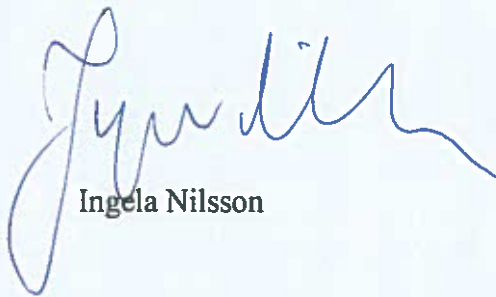 Ingela Nilsson